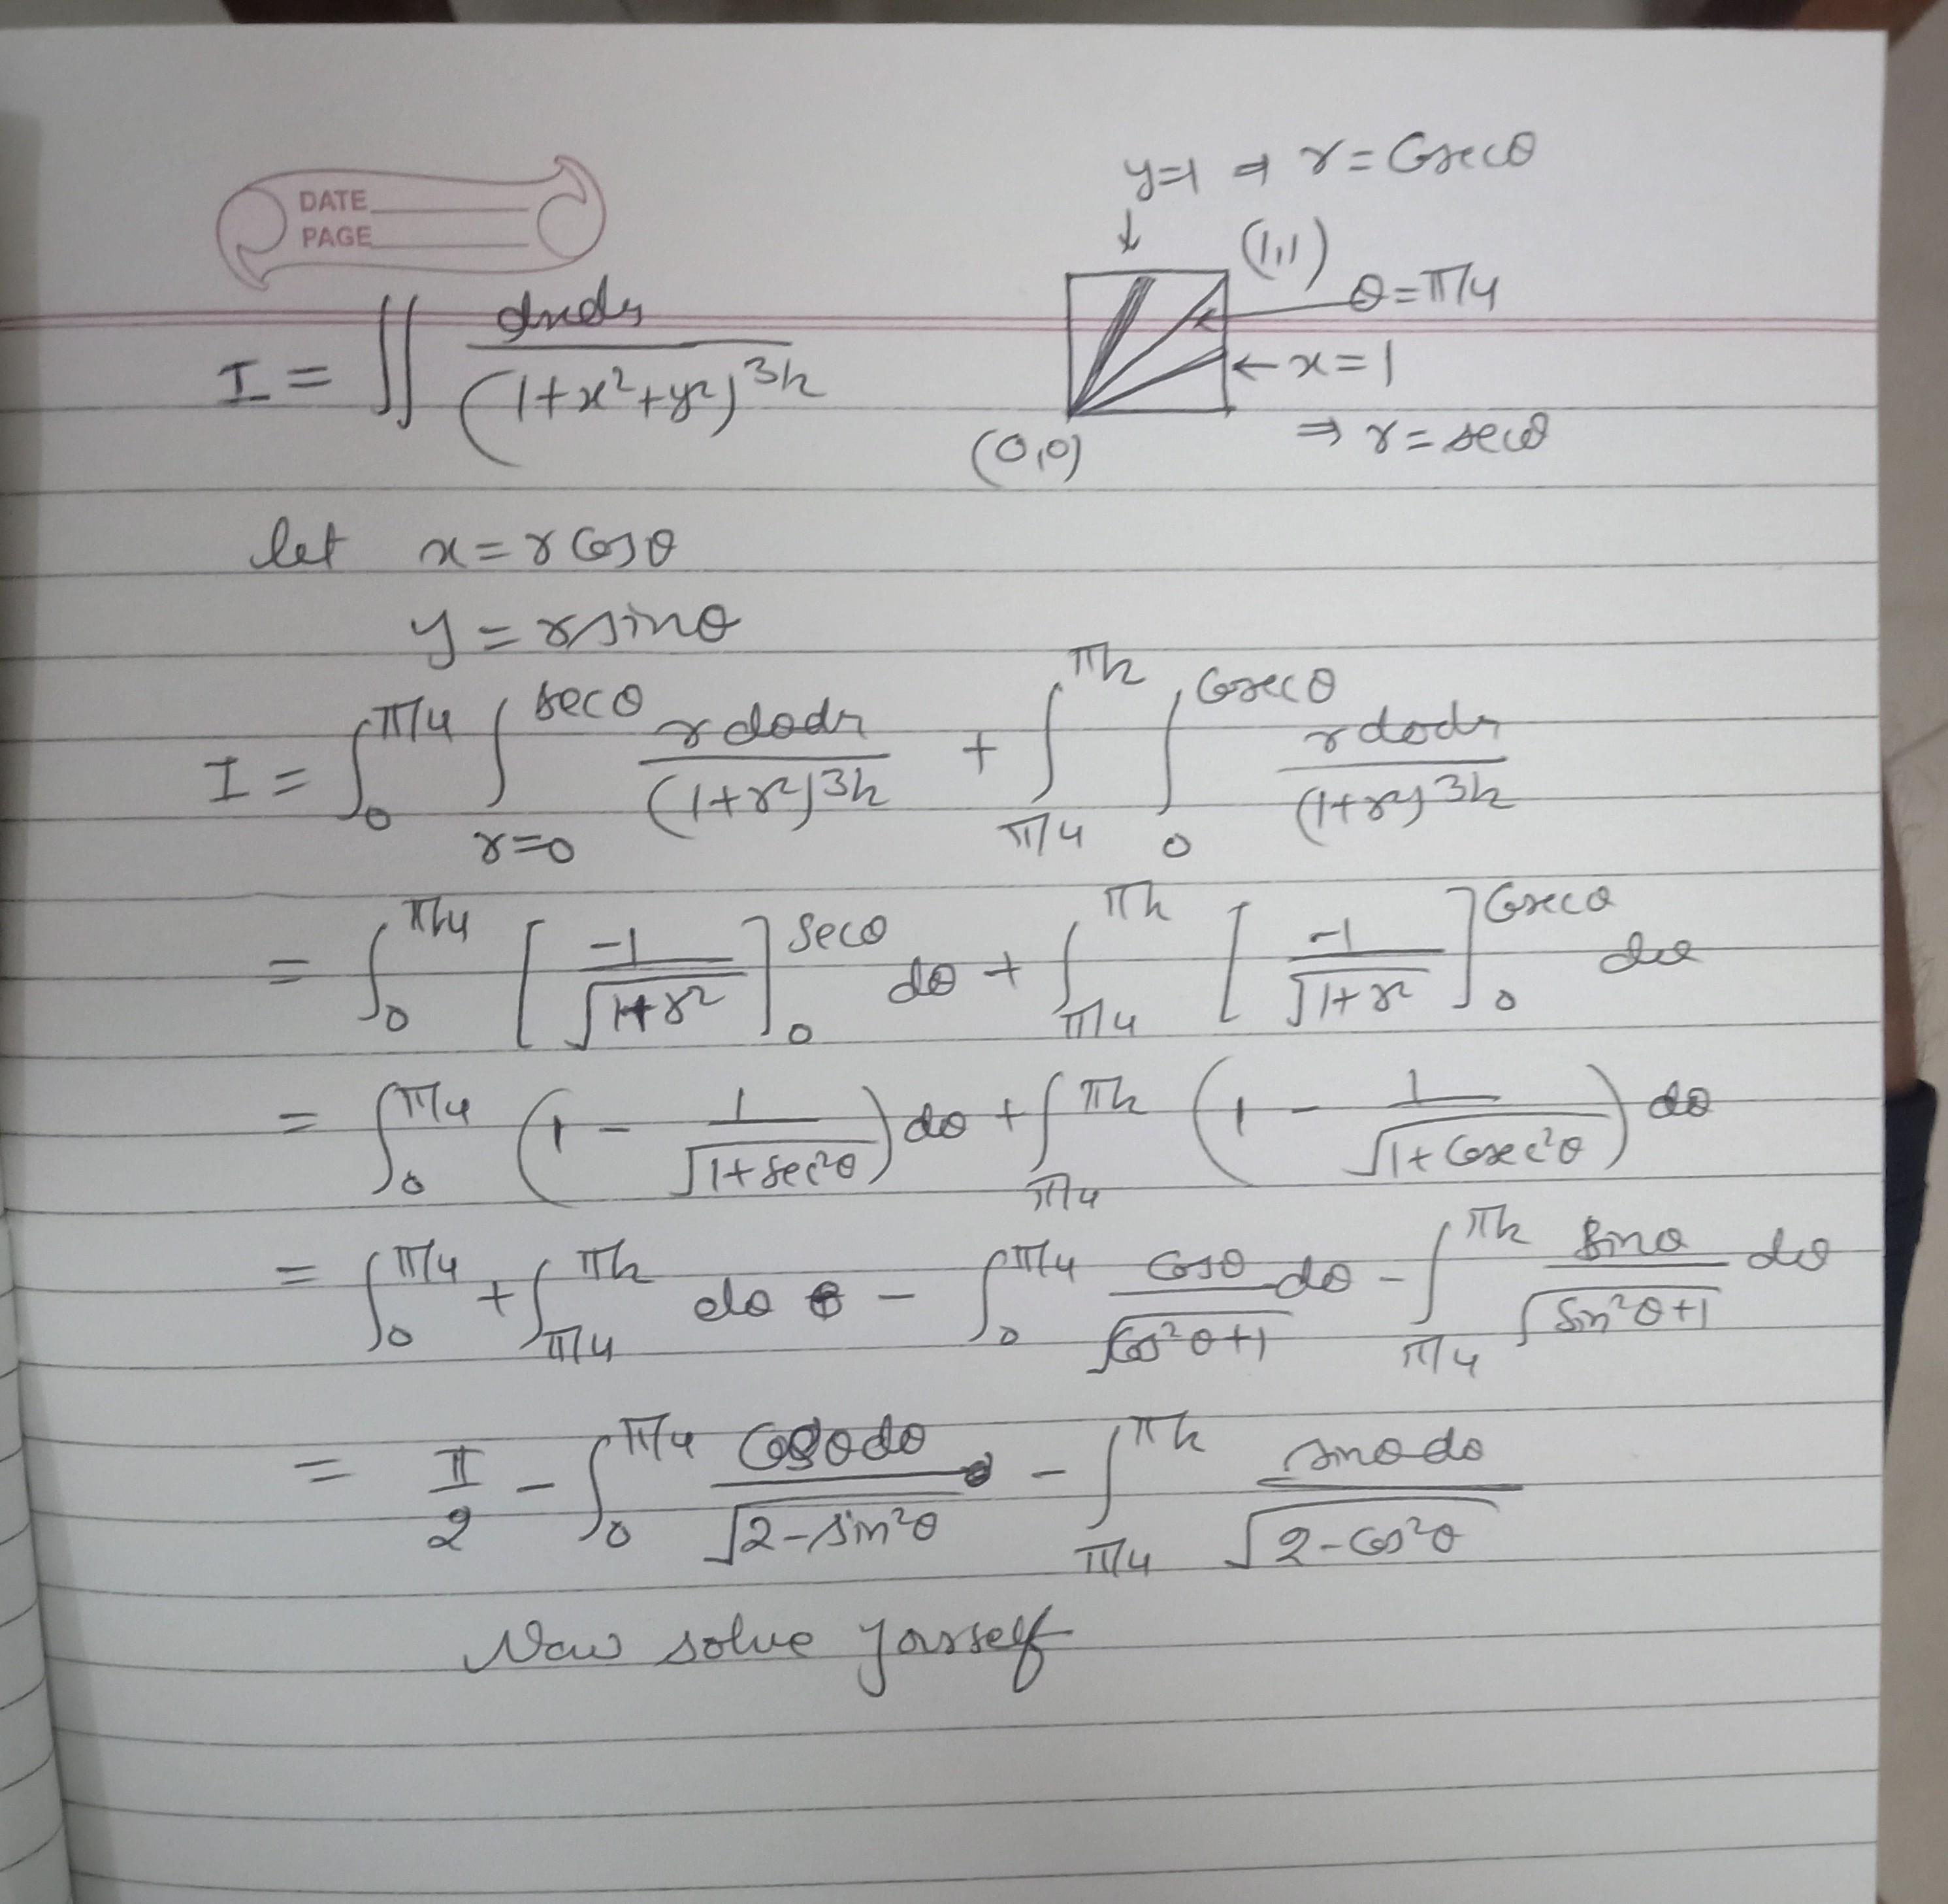 DATE
PAGE
y=1 ⇒ r = Cosecθ
↓
(1,1)
θ = π/4
I = ∬ dxdy / (1+x²+y²)^3/2
← x = 1
(0,0)
⇒ r = secθ
let x = r Cosθ
y = r sinθ
I = ∫_0^π/4 ∫_r=0^secθ r dθdr / (1+r²)^3/2 + ∫_π/4^π/2 ∫_0^Cosecθ r dθdr / (1+r²)^3/2
= ∫_0^π/4 [ -1 / √1+r² ]_0^Secθ dθ + ∫_π/4^π/2 [ -1 / √1+r² ]_0^Cosecθ dθ
= ∫_0^π/4 (1 - 1 / √1+sec²θ) dθ + ∫_π/4^π/2 (1 - 1 / √1+Cosec²θ) dθ
= ∫_0^π/4 + ∫_π/4^π/2 dθ - ∫_0^π/4 cosθ / √Cos²θ+1 dθ - ∫_π/4^π/2 Sinθ / √Sin²θ+1 dθ
= π/2 - ∫_0^π/4 Cosθdθ / √2-sin²θ - ∫_π/4^π/2 sinθdθ / √2-Cos²θ
Now solve yourself